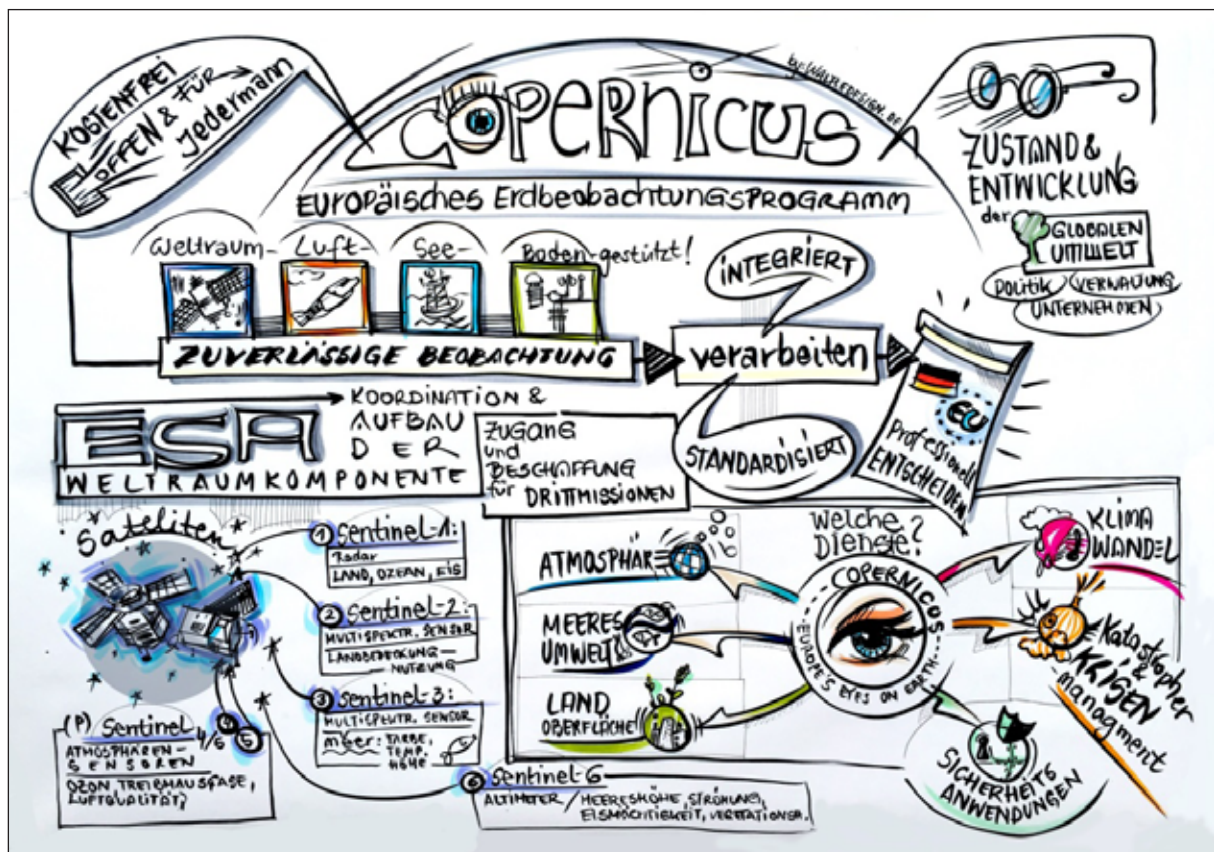 KOSTENFREI
OFFEN & FÜR
Jedermann
COPERNICUS
EUROPÄISCHES ERDBEOBACHTUNGSPROGRAMM
ZUSTAND &
ENTWICKLUNG
der
GLOBALEN
UMWELT
Politik
VERWALTUNG
UNTERNEHMEN
Weltraum- Luft- See- Boden-gestützt!
ZUVERLÄSSIGE BEOBACHTUNG
INTEGRIERT
verarbeiten
STANDARDISIERT
EU
Professionell
ENTSCHEIDEN
ESA
KOORDINATION &
AUFBAU
DER
WELTRAUMKOMPONENTE
ZUGANG
und
BESCHAFFUNG
für DRITTMISSIONEN
Sateliten
1 Sentinel-1:
Radar
LAND, OZEAN, EIS
2 Sentinel-2:
MULTISPEKTR. SENSOR
LANDBEDECKUNG-
NUTZUNG
3 Sentinel-3:
MULTISPEKTR. SENSOR
meer: FARBE,
TEMP.
HÖHE
(P) Sentinel
4/5
4
5
ATMOSPHÄREN-
SENSOREN
OZON TREIBHAUSGASE,
LUFTQUALITÄT,
6 Sentinel-6
ALTIMETER / MEERESHÖHE, STRÖHUNG,
Welche
Dienste?
COPERNICUS
EUROPE'S EYES ON EARTH
ATMOSPHÄR
MEERES
UMWELT
LAND
OBERFLÄCHE
KLIMA
WANDEL
Katastrophen
&
KRISEN
managment
SICHERHEITS
ANWENDUNGEN